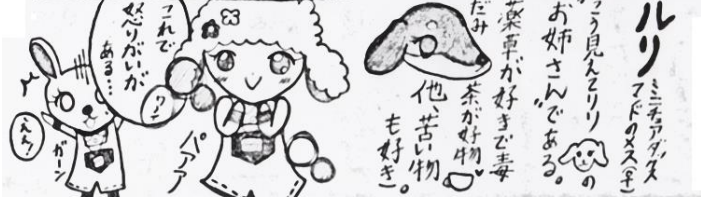 ルリ
ミニチュアダックス
フドのメス(♀)
こう見えてリリ
の
お姉さんである。
薬草が好きで毒
だみ茶が好物♥
他、苦い物
も好き。
これで
怒りがいが
ある…
パァァ
ガーン
ええ!